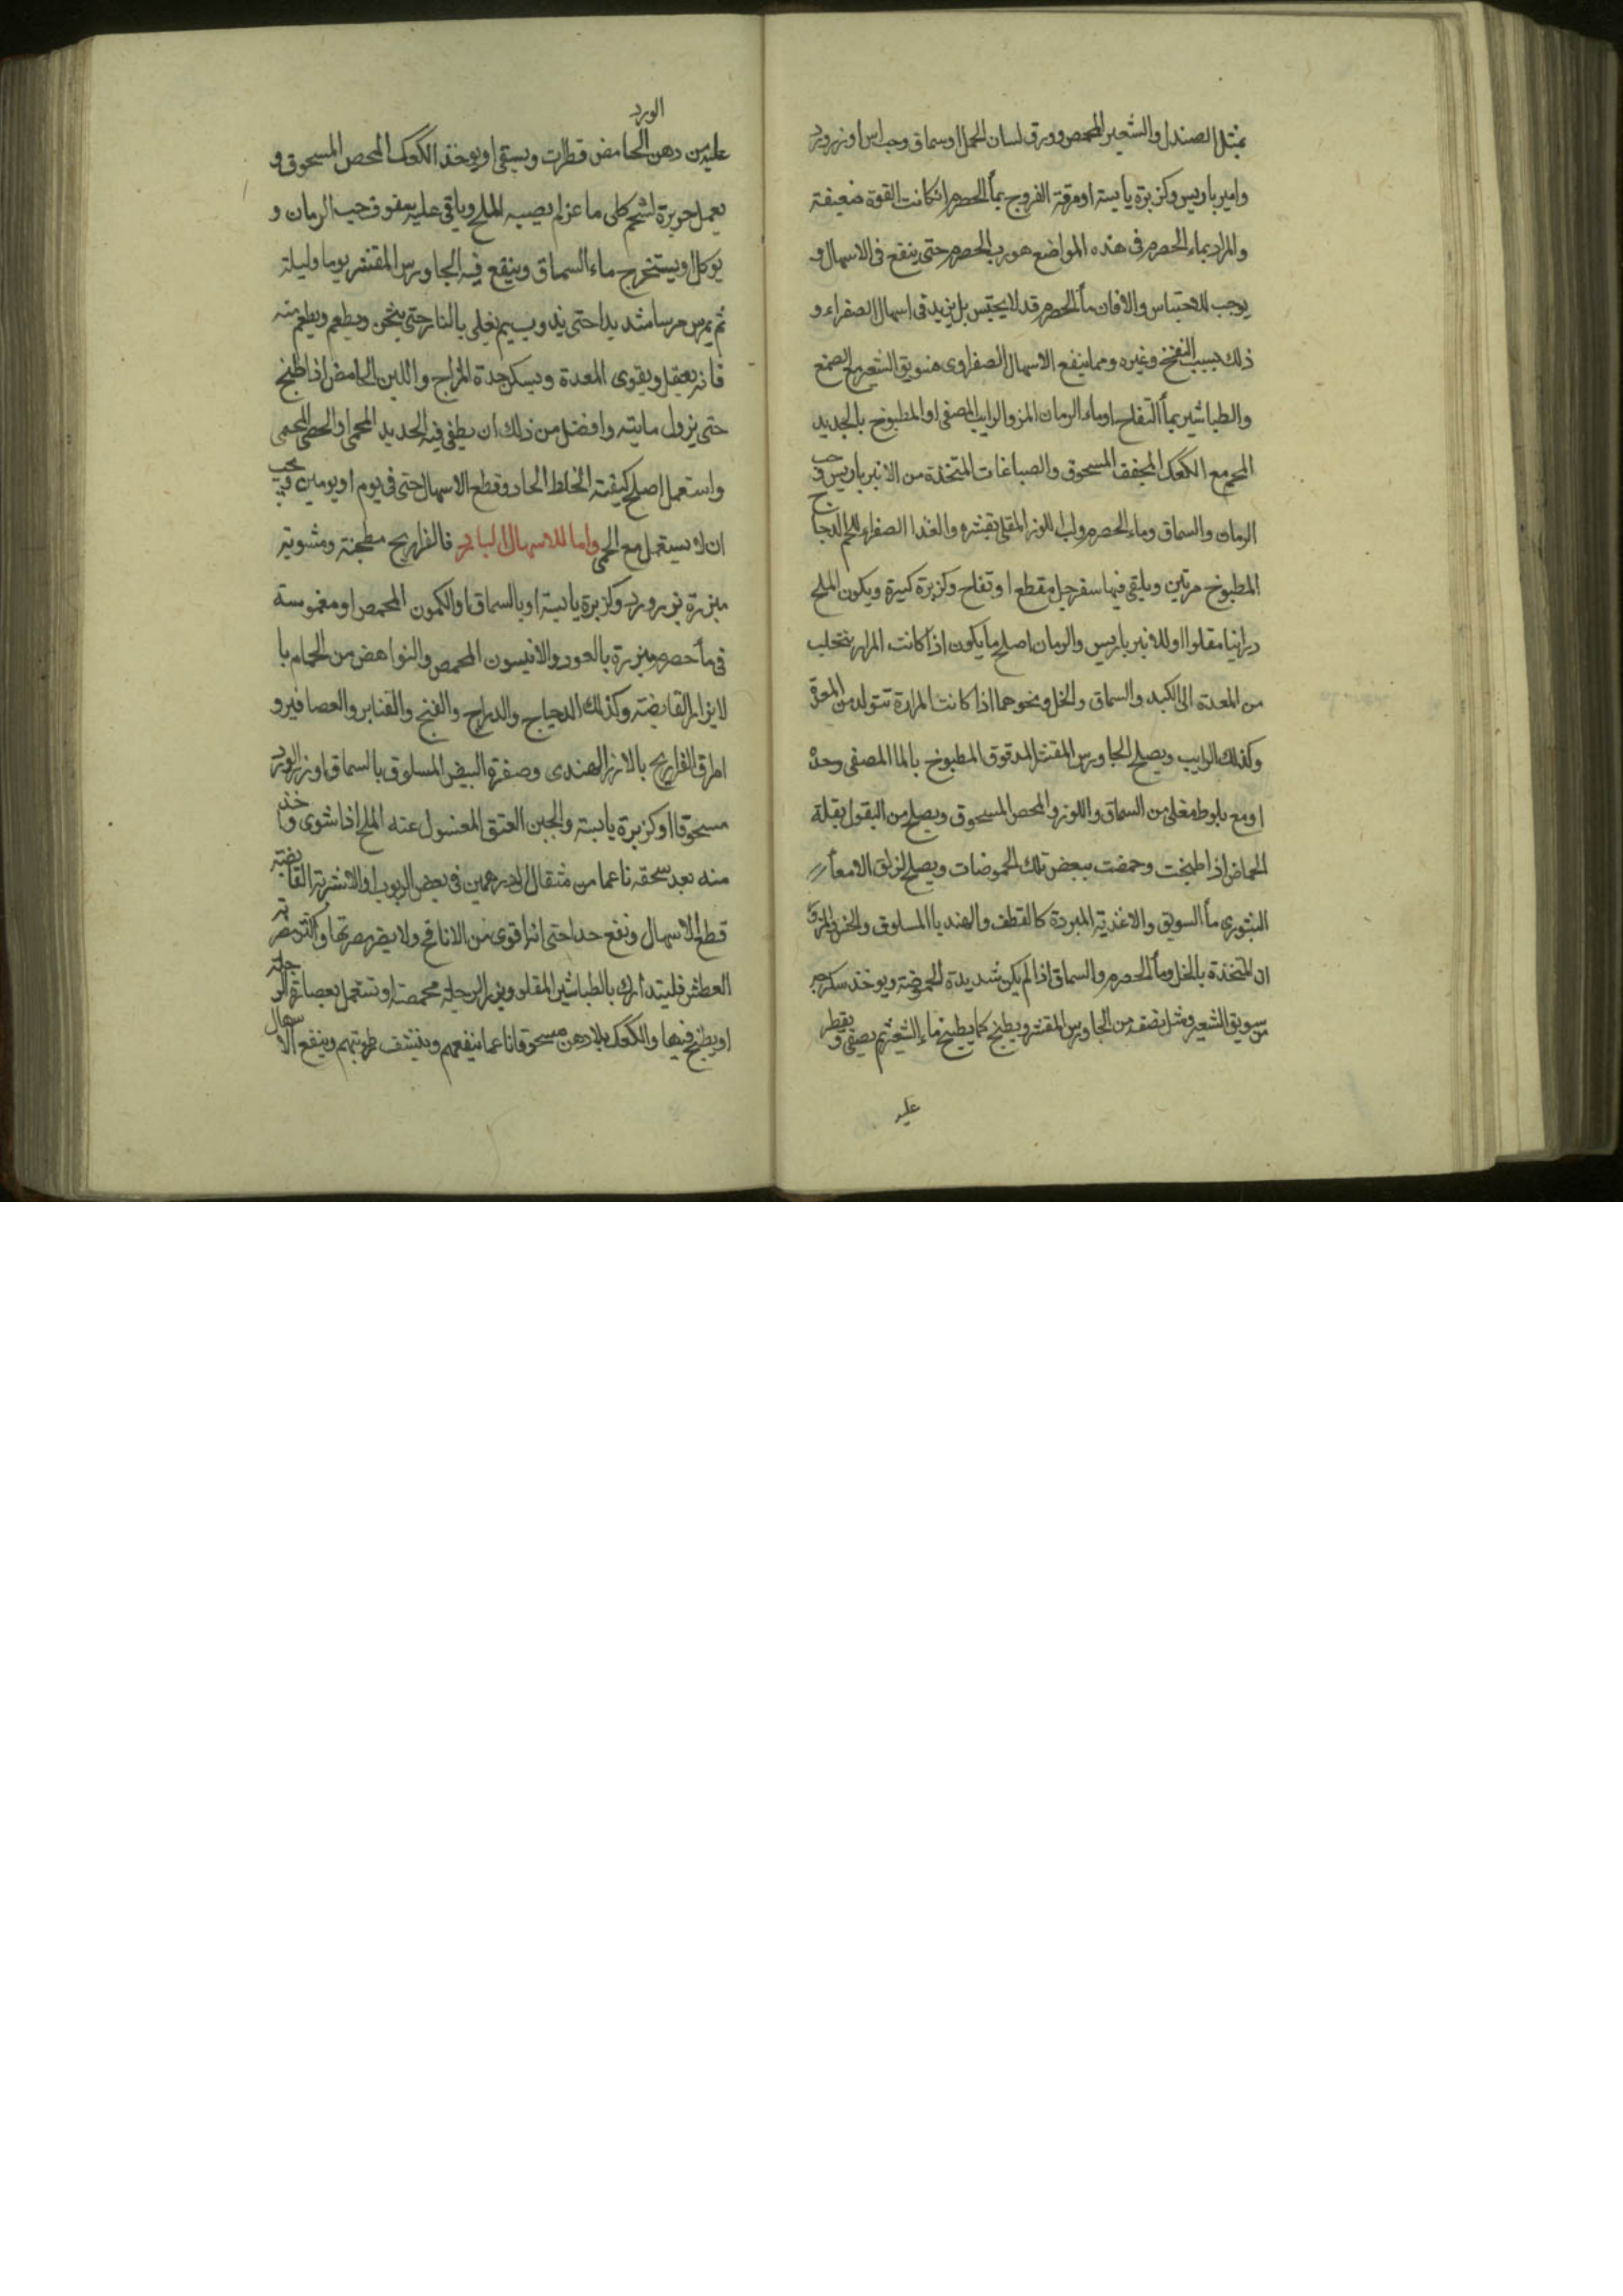 بمثل الصندل والشعير المحمص وورق لسان الحمل او سماق وحب اس او بزر ورد
وامير باريس وكزبرة يابسة او مرقة الفروج بماء الحصرم ان كانت القوة ضعيفة
والمراد بماء الحصرم فى هذه المواضع هو رب الحصرم حتى ينفع فى الاسهال و
يوجب الاحتباس والا فان ماء الحصرم قد لا يحبس بل يزيد فى اسهال الصفراء و
ذلك بسبب النفخ وغيره ومما ينفع الاسهال الصفراوى هو سويق الشعير مع الصمغ
والطباشير بماء التفاح او ماء الرمان المز والرايب المصفى او المطبوخ بالحديد
المحمى مع الكعك المجفف المسحوق والصباغات المتخذة من الانبرباريس وحب
الرمان والسماق وماء الحصرم ولب اللوز المقلى بقشره والغذا الصفراء لحم الدجاج
المطبوخ مرتين ويلقى فيها سفرجل مقطع او تفاح وكزبرة كثيرة ويكون الملح
درانيا مقلوا او للانبرباريس والرمان اصلح ما يكون اذا كانت المرار يتحلب
من المعدة الى الكبد والسماق والخل ونحوهما اذا كانت المرارة تتولد من المعدة
وكذلك الرايب ويصلح الجاورس المقشر المدقوق المطبوخ بالماء المصفى وحده
او مع بلوط مغلى من السماق واللوز والمحص المسحوق ويصلح من البقول بقلة
الحماض اذا طبخت وحمضت ببعض تلك الحموضات ويصلح لزلق الامعاء
البثورى ماء السويق والاغذية المبردة كالقطف والهندبا المسلوق والخس والمزور
ان المتخذة بالخل وماء الحصرم والسماق اذا لم يكن شديدة الحموضة ويوخذ سكرجة
من سويق الشعير ومثل نصفه من الجاورس المقشر ويطبخ كما يطبخ ماء الشعير ثم يصفى ويقطر
عليه
عليه من دهن الورد الحامض قطرات ويسقى او يوخذ الكعك المحمص المسحوق و
يعمل حريرة لشحم كلى ماعز لم يصبه الملح ويلقى عليه سفوف حب الرمان و
يوكل او يستخرج ماء السماق وينقع فيه الجاورس المقشر يوما وليلة
ثم يمرس مرسا شديدا حتى يذوب ثم يغلى بالنار حتى يثخن ويطعم ويطعم منه
فانه يعقل ويقوى المعدة ويسكن حدة المزاج واللبن الحامض اذا طبخ
حتى يزول مايته وافضل من ذلك ان يطفى فيه الحديد المحمى او الحصى المحمى
واستعمل اصلح كيفية الخلط الحاد وقطع الاسهال حتى فى يوم او يومين ويجب
ان لا يستعمل مع الحمى واما للاسهال البارد فالفراريج مطجنة ومشوية
مبزرة ببزر ورد وكزبرة يابسة او بالسماق او الكمون المحمص او مغموسة
فى ماء حصرم مبزرة بالعود والانيسون المحمص والنواهض من الحمام با
لابزار القابضة وكذلك الدجاج والدراج والقبج والقنابر والعصافير و
امراق الفراريج بالارز الهندى وصفرة البيض المسلوق بالسماق او بزر الورد
مسحوقا او كزبرة يابسة والجبن العتق المغسول عنه الملح اذا شوى واخذ
منه بعد سحقه ناعما من مثقال الى درهمين فى بعض الربوب او الاشربة القابضة
قطع الاسهال ونفع جدا حتى انه اقوى من الانافح ولا يضر مضرتها واكثر مضرته
العطش فليتدارك بالطباشير المقلو وبزر الرجلة محمصة او تستعمل بعصارة الرجلة
او يطبخ فيها والكعك بلا دهن مسحوقا ناعما ينفعهم وينشف رطوبتهم وينفع الاسهال